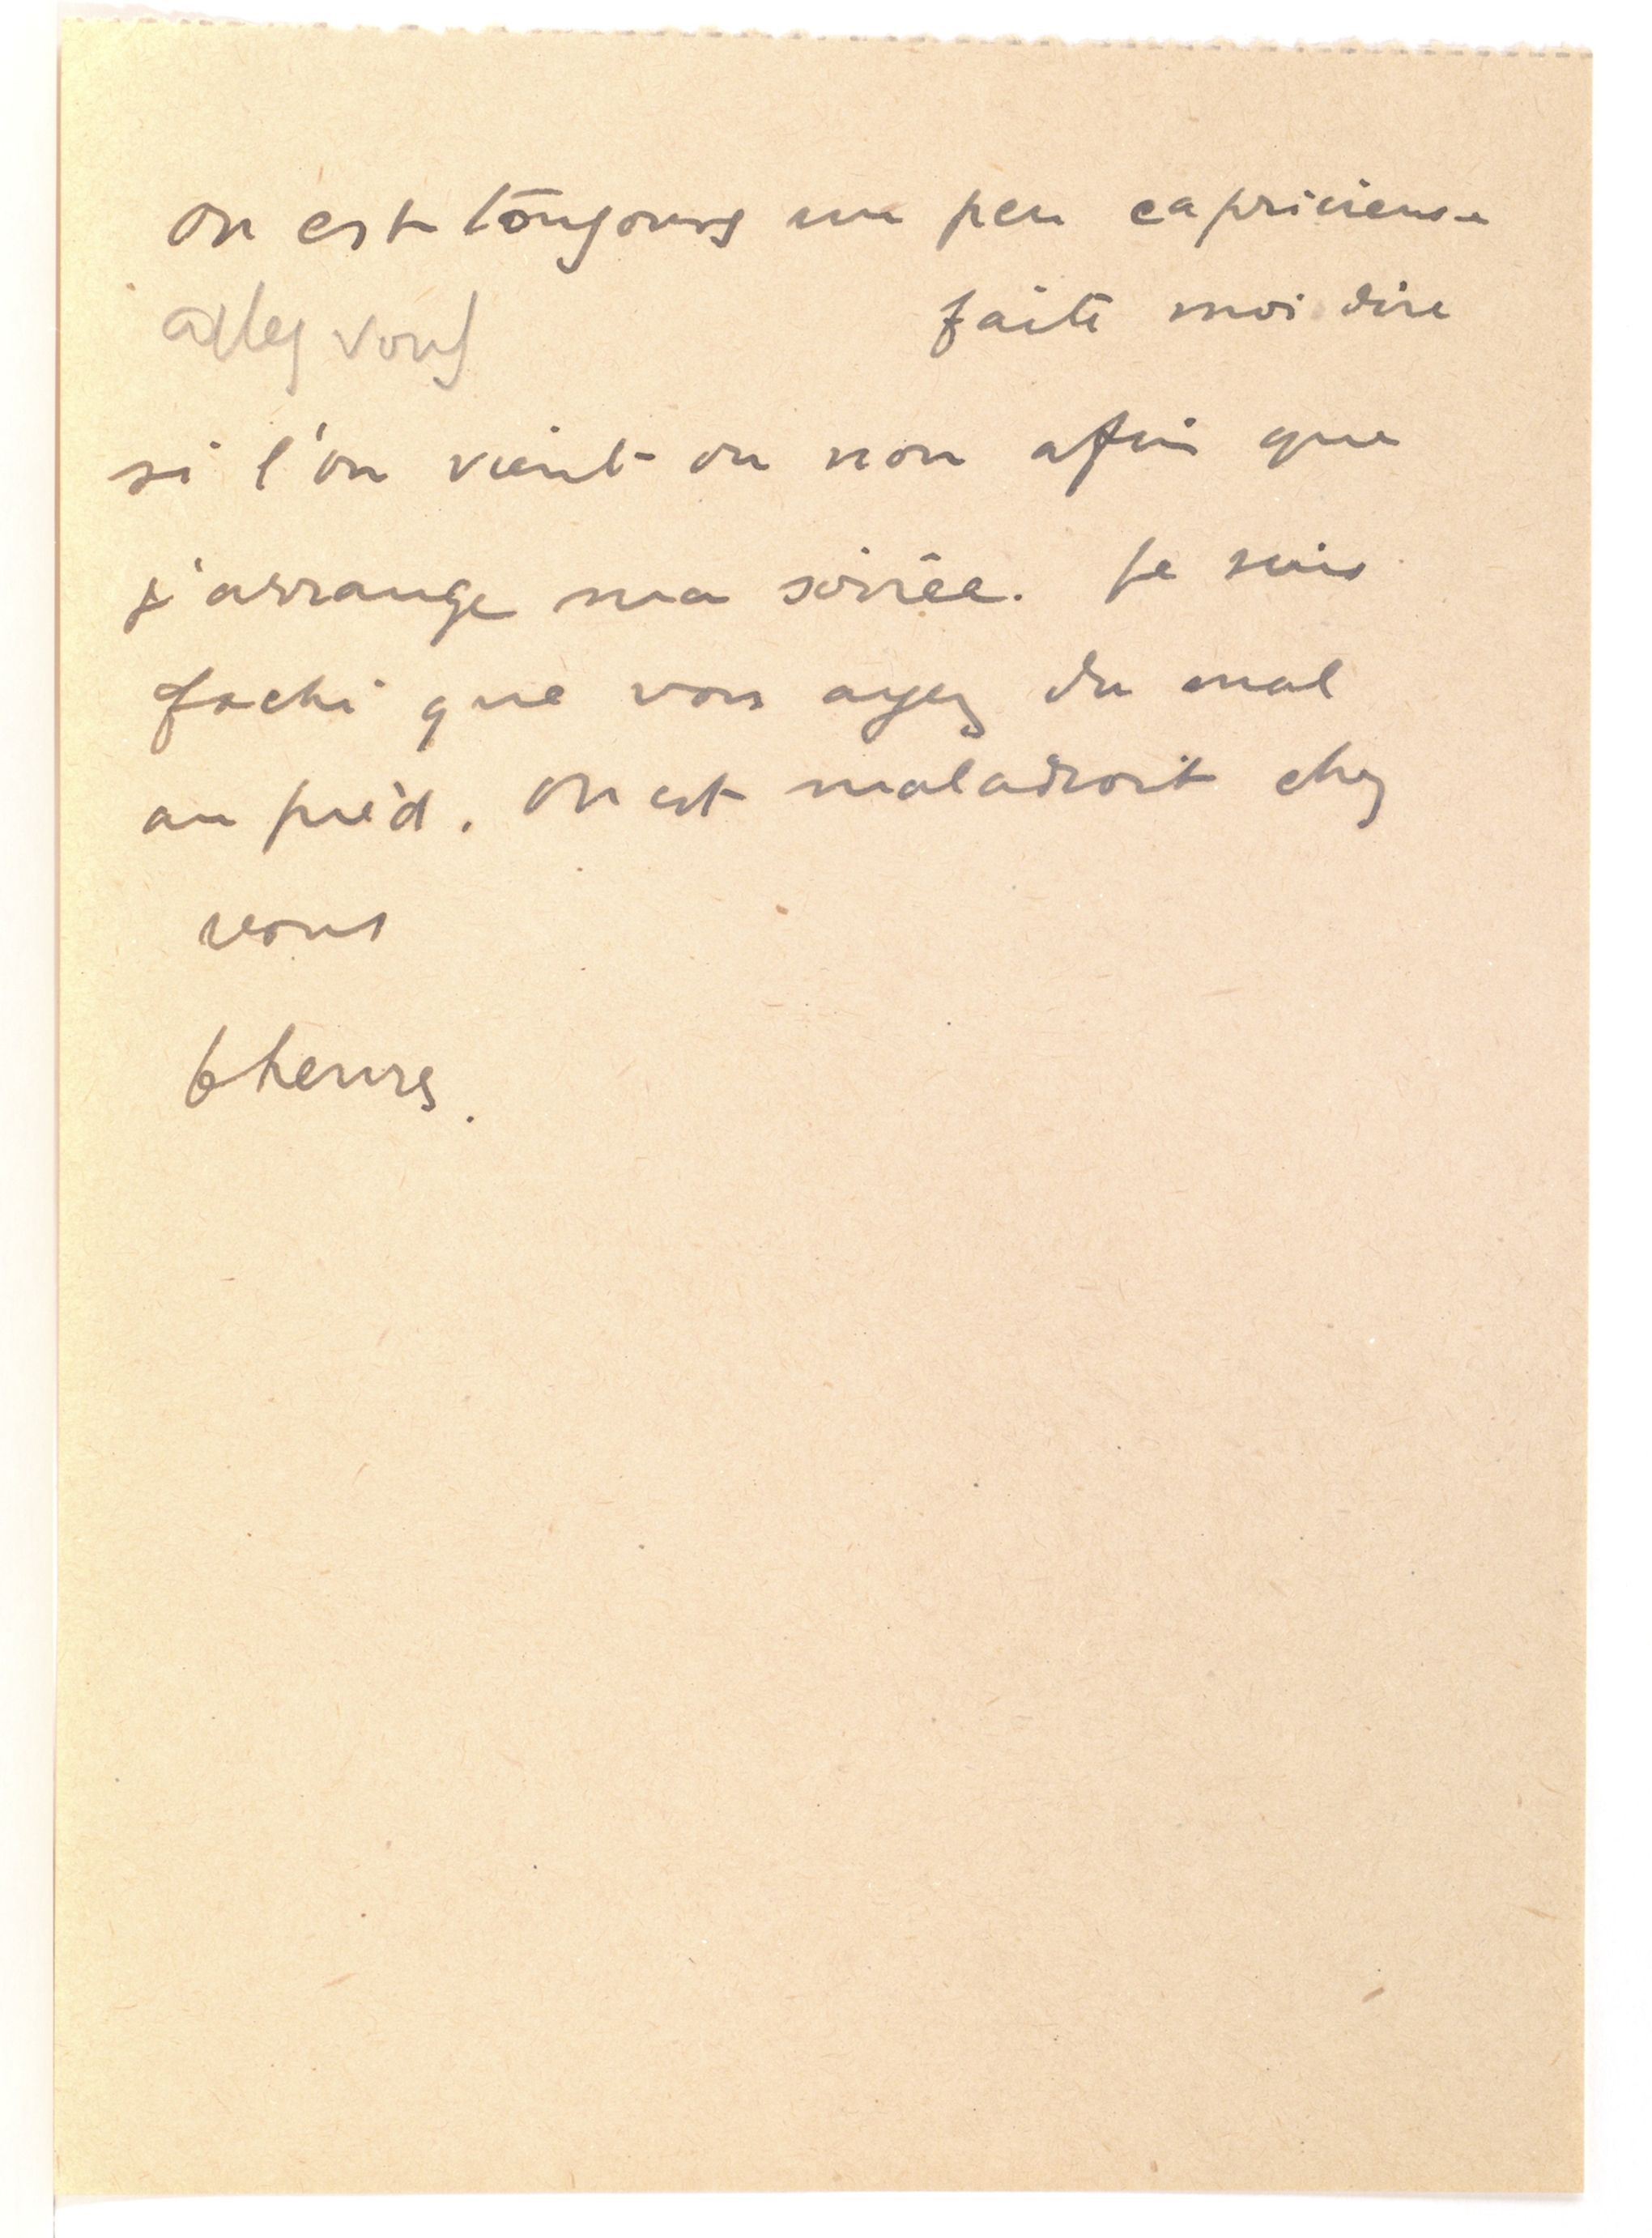 on est toujours un peu capricieuse
allez vous faite moi dire
si l'on vient ou non afin que
j'arrange ma soirée. Je suis
faché que vous ayez du mal
au pied. On est maladroit chez
vous
6 heures.